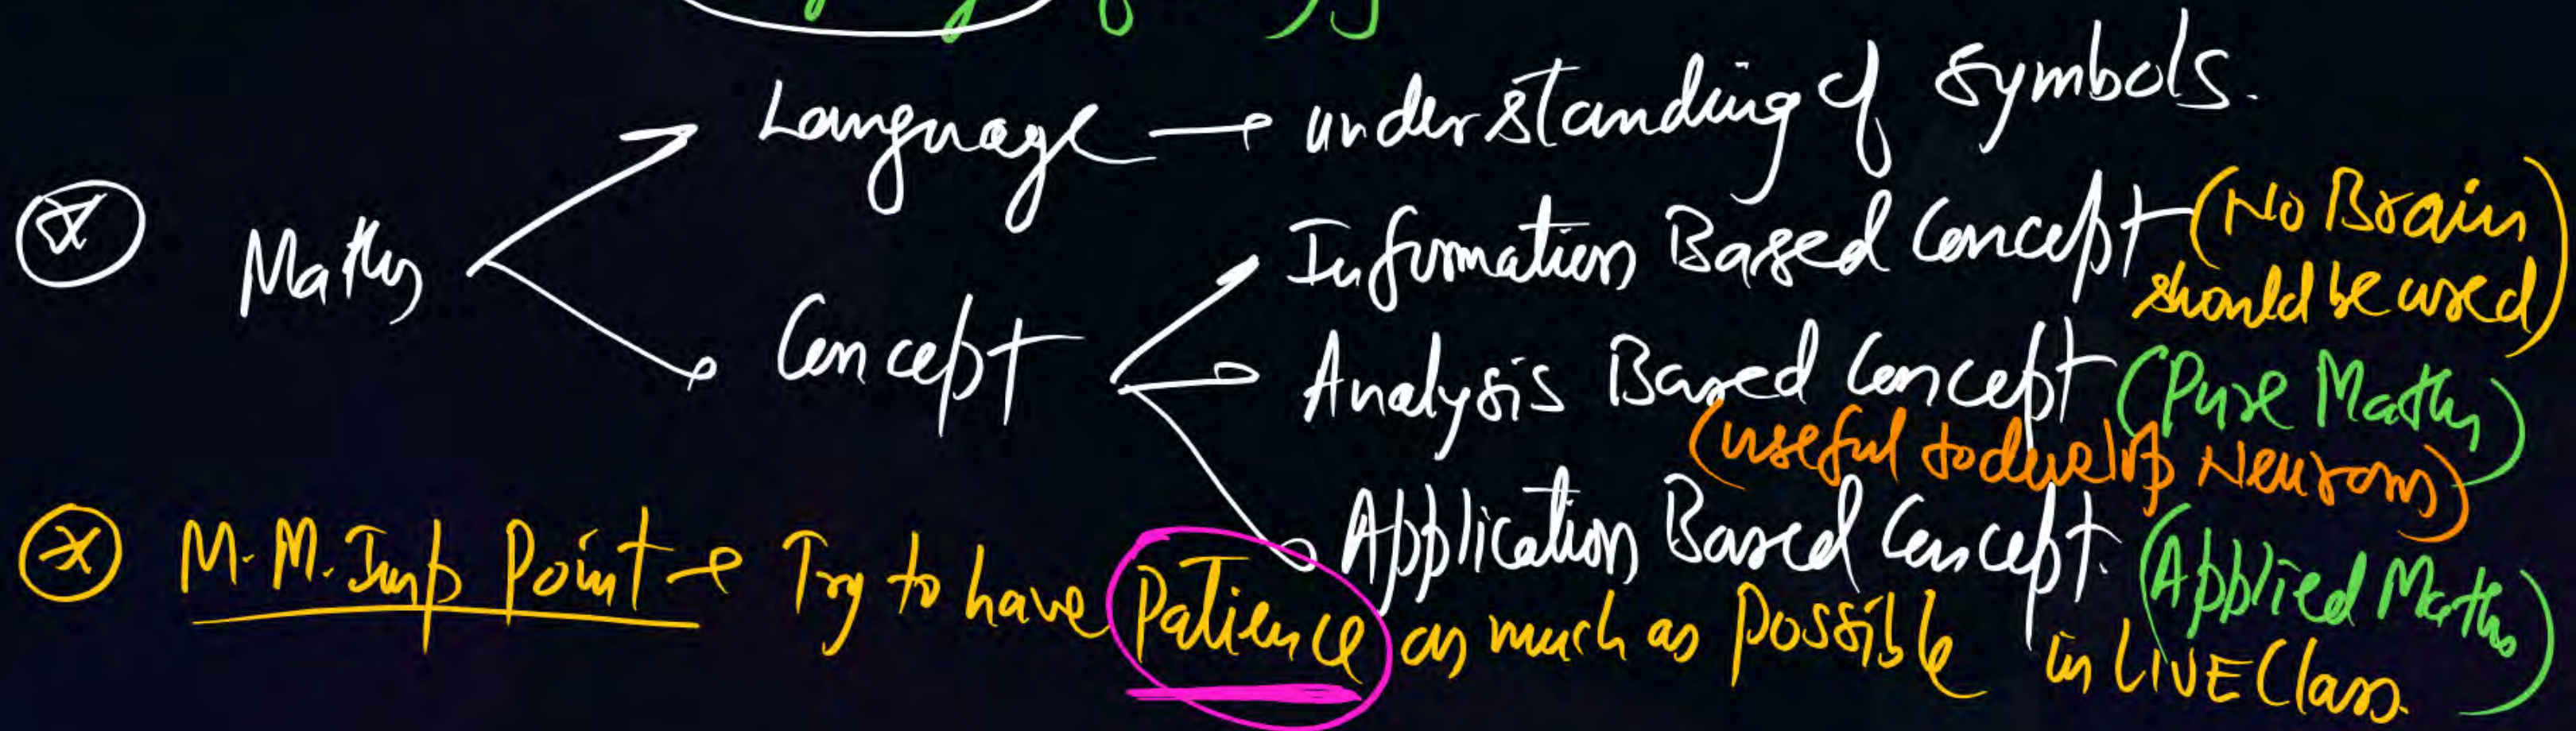 Language → understanding of symbols.
Maths
Concept
Information Based Concept (No Brain should be used)
Analysis Based Concept (Pure Maths)
(useful to develop Neurons)
Application Based Concept. (Applied Maths)
M. M. Imp Point → Try to have Patience as much as possible in LIVE Class.